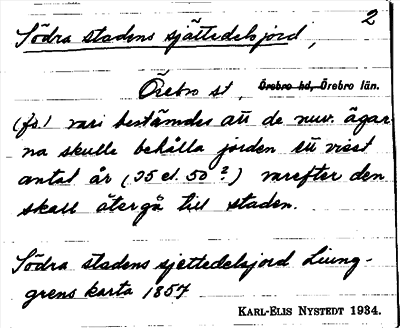 2
Södra stadens sjättedelsjord,
Örebro st, Örebro hd, Örebro län.
(fs) vari bestämdes att de nuv. ägar
na skulle behålla jorden ett visst
antal år (25 el. 50 ?) varefter den
skall återgå till staden.
Södra stadens sjettedelsjord Ljung-
grens karta 1857
KARL-ELIS NYSTEDT 1934.